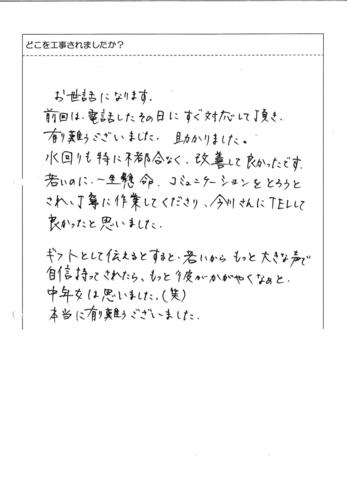 どこを工事されましたか？
お世話になります。
前回は、電話したその日にすぐ対応して頂き、
有り難うございました。 助かりました。
水回りも特に不都合なく、改善して良かったです。
若いのに、一生懸命、コミュニケーションをとろうと
され、丁寧に作業してくださり、今川さんにTELして
良かったと思いました。
ギフトとして伝えるとすると、若いからもっと大きな声で
自信持ってされたら、もっと彼がかがやくなぁと、
中年女は思いました。(笑)
本当に有り難うございました。